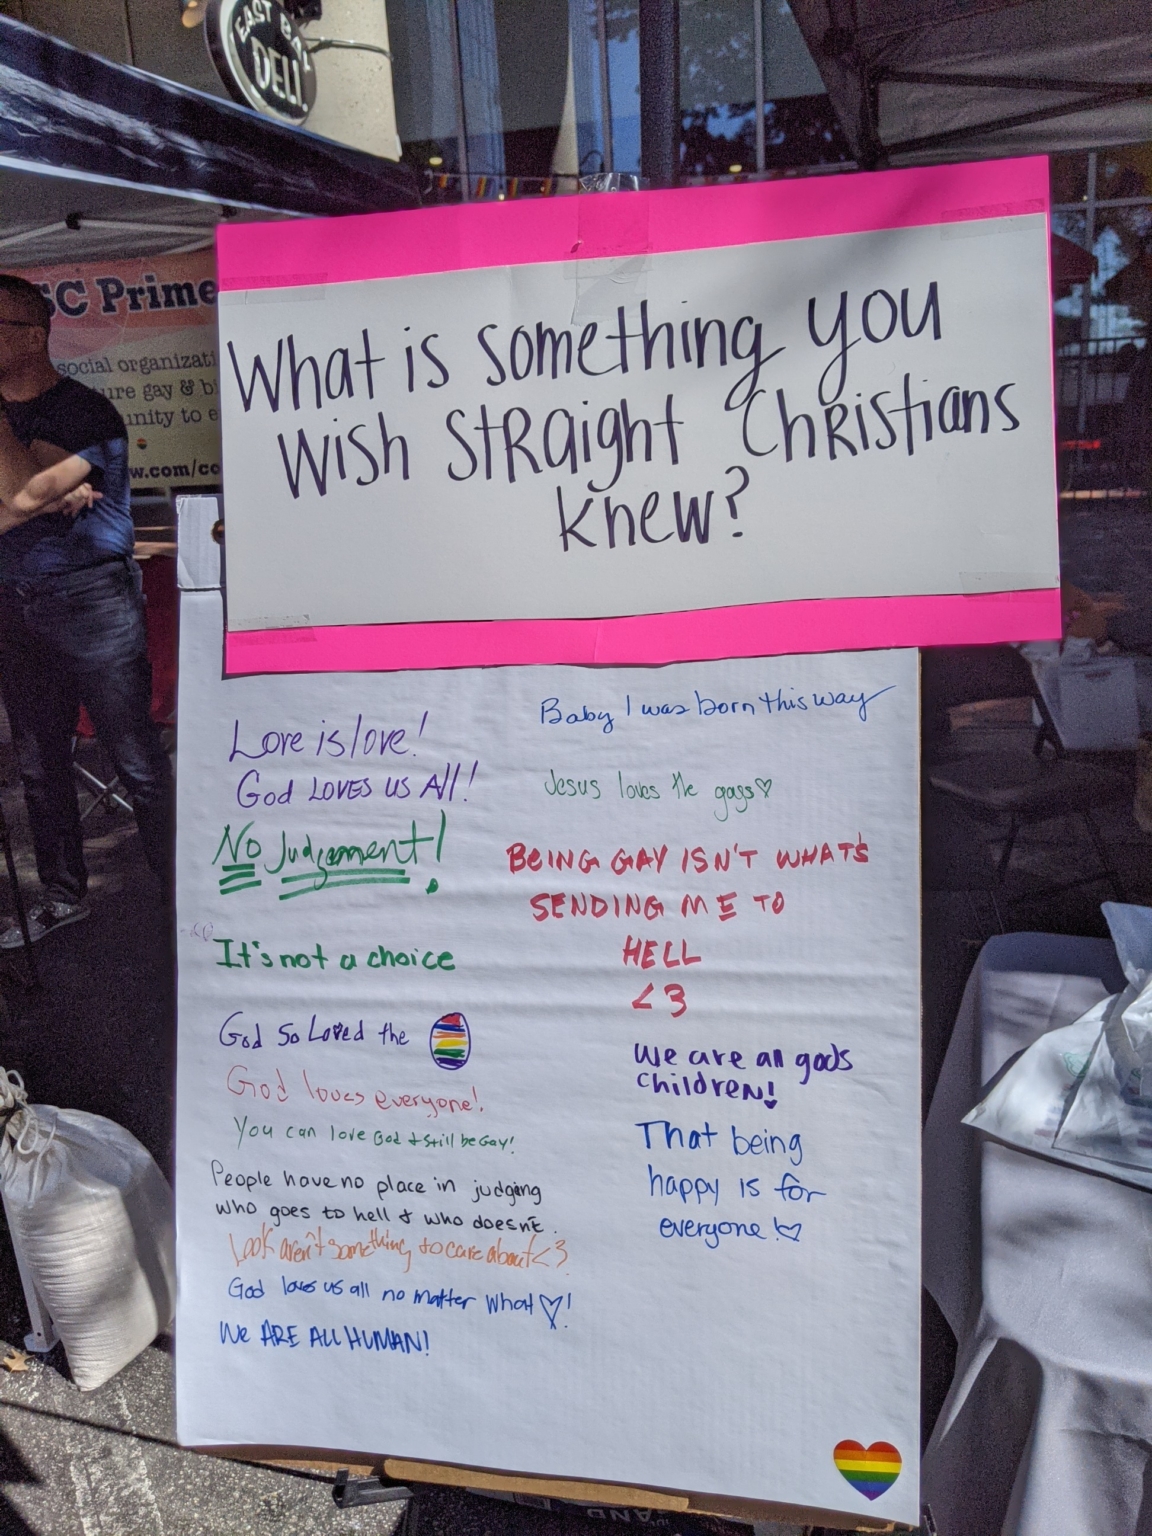 EAST BAY
DELI
SC Prime
social organizati
ure gay & b
unity to e
w.com/co
What is something you
wish straight Christians
knew?
Love is love!
God LOVES US All!
No Judgement!
It's not a choice
God so Loved the
God loves everyone!
You can love God & still be Gay!
People have no place in judging
who goes to hell & who doesn't.
Look aren't something to care about <3
God loves us all no matter what ♡!
We ARE ALL HUMAN!
Baby I was born this way
Jesus loves the gays ♡
BEING GAY ISN'T WHATS
SENDING ME TO
HELL
<3
We are all gods
children!
That being
happy is for
everyone! ♡